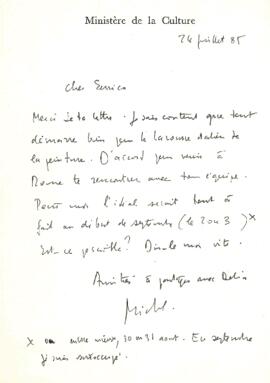 Ministère de la Culture
24 juillet 85
Cher Enrico
Merci de ta lettre. Je suis content que tout
démarre bien pour le Larousse italien de
la peinture. D'accord pour venir à
Rome te rencontrer avec ton équipe.
Pour moi l'idéal serait tout à
fait au début de septembre (le 2 ou 3) x
Est-ce possible? Dis-le moi vite.
Amitiés à partager avec
Michel
x ou encore mieux, 30 ou 31 août. En septembre
je suis surchargé.